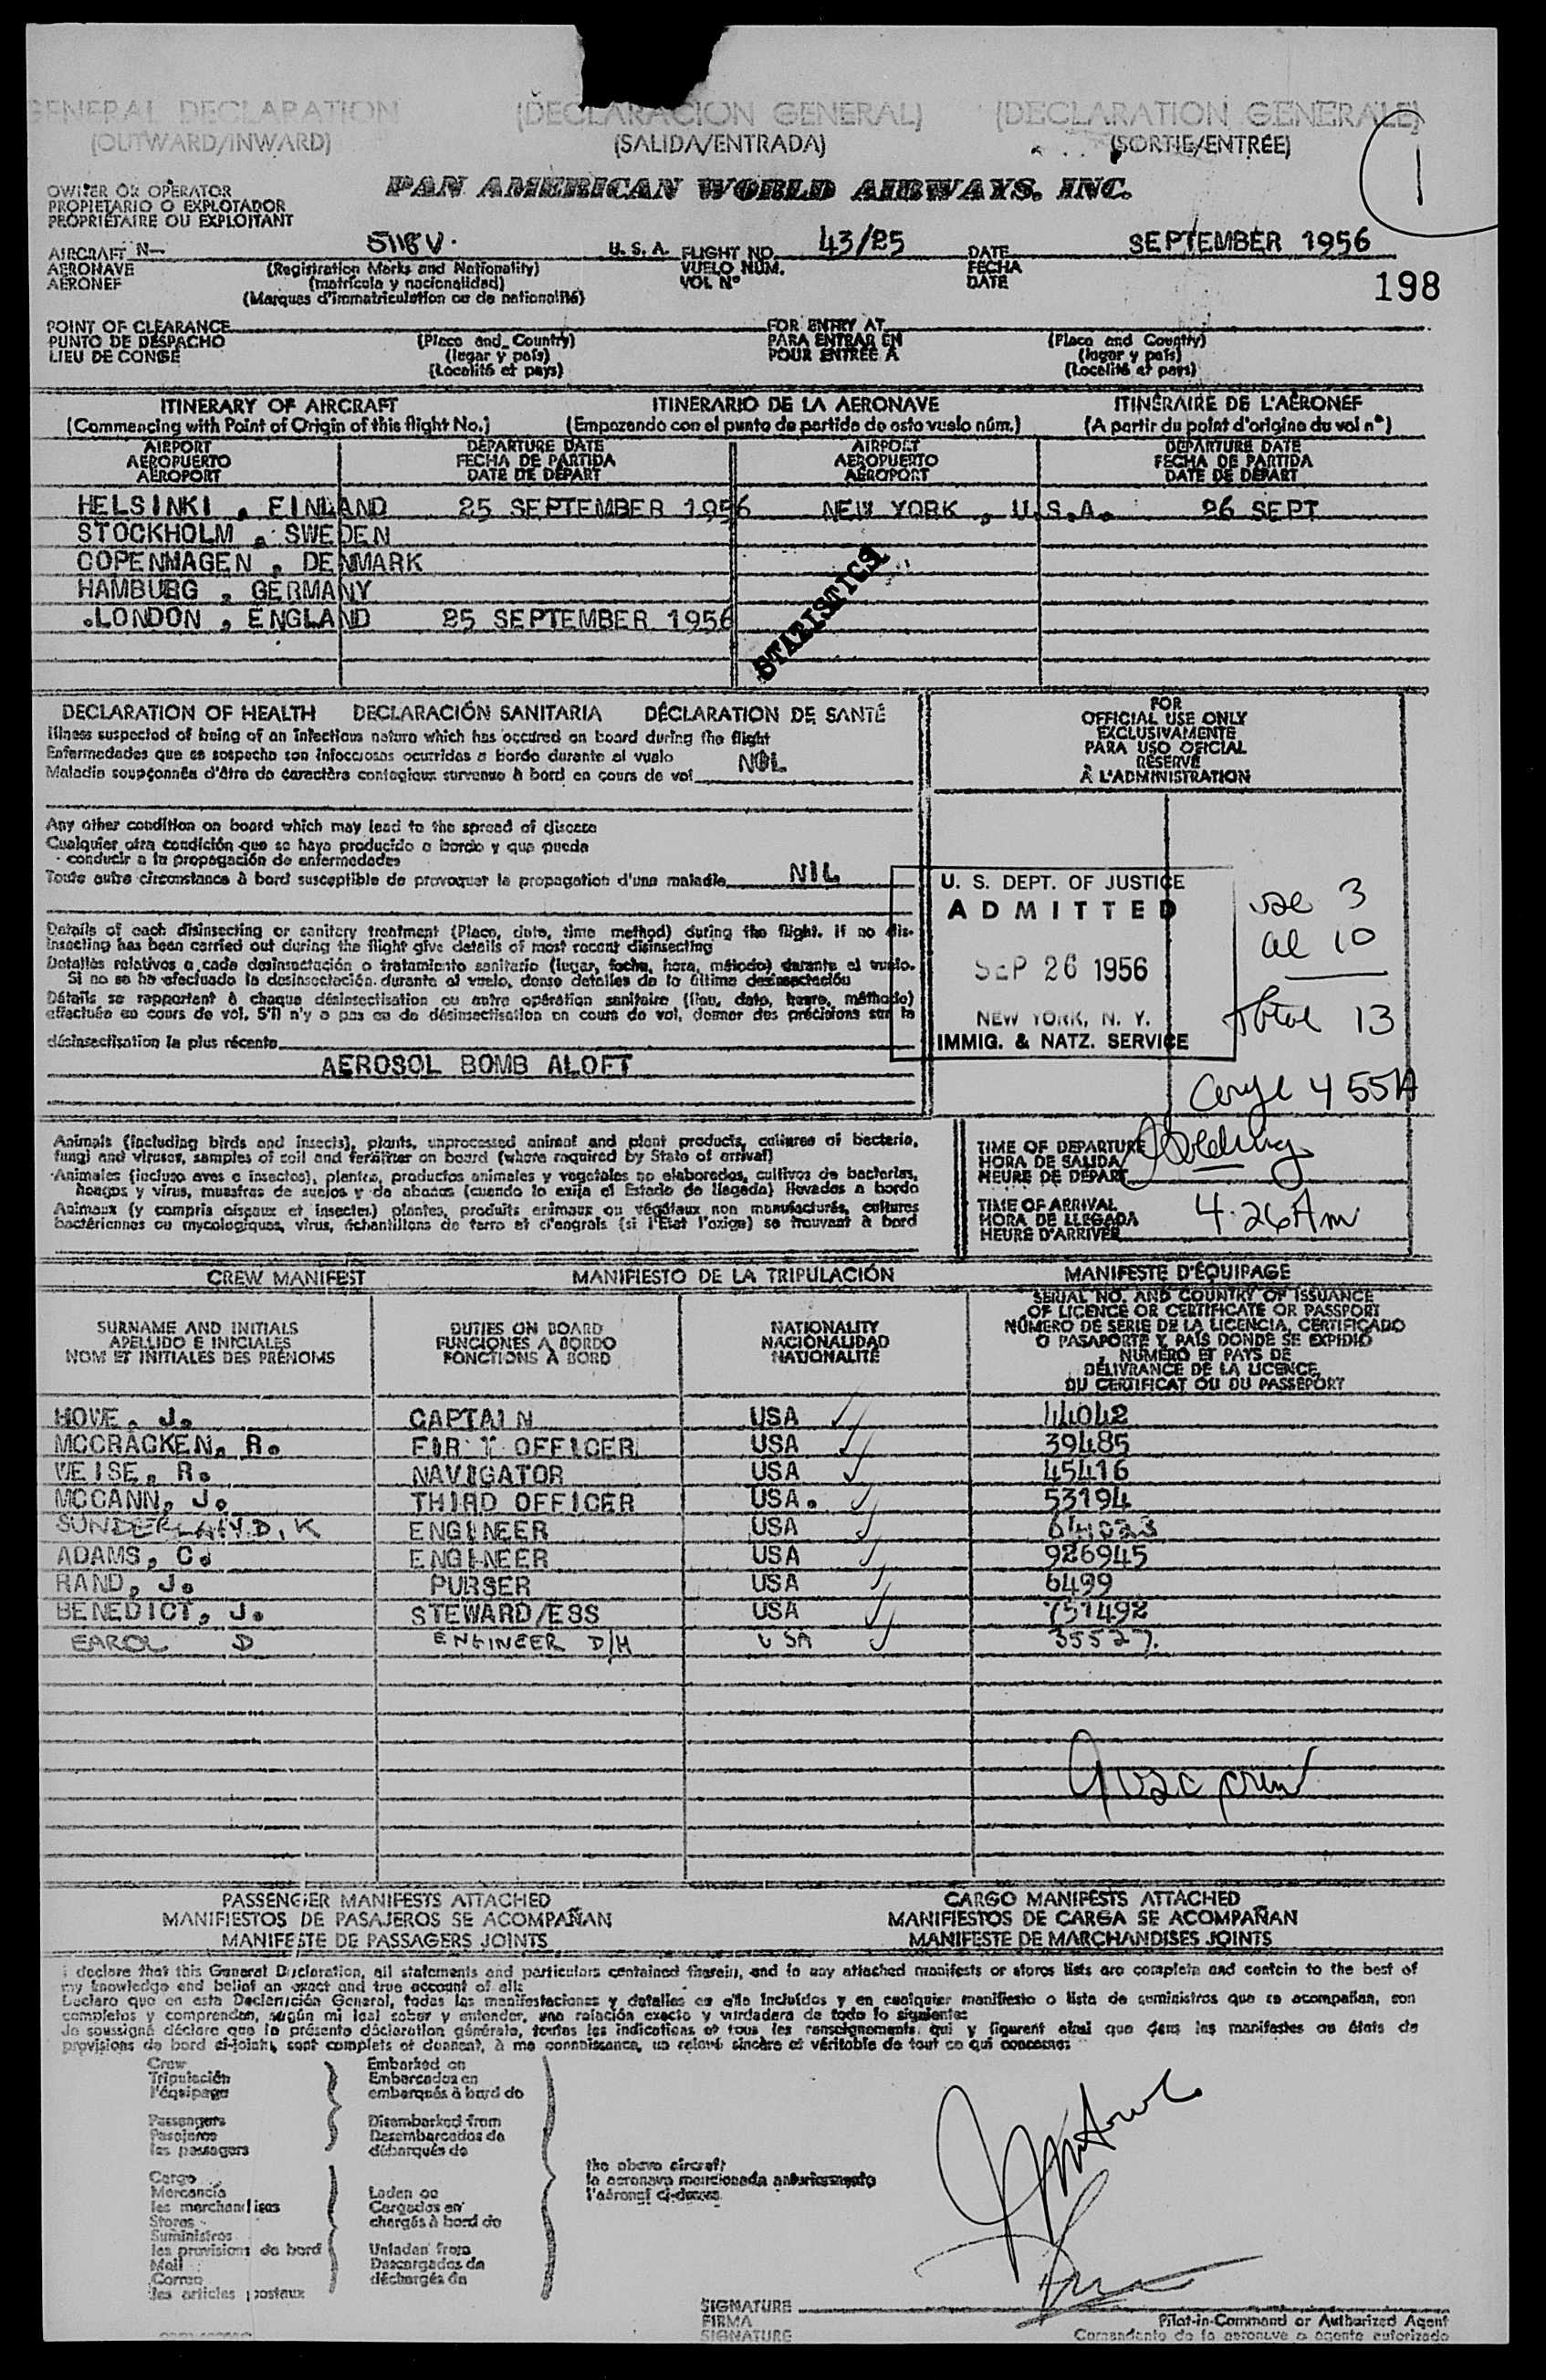 GENERAL DECLARATION (DECLARACION GENERAL) (DECLARATION GENERALE)
(OUTWARD/INWARD) (SALIDA/ENTRADA) (SORTIE/ENTRÉE)
1
OWNER OR OPERATOR
PROPIETARIO O EXPLOTADOR
PROPRIÉTAIRE OU EXPLOITANT
PAN AMERICAN WORLD AIRWAYS, INC.
AIRCRAFT N— 5118V. U. S. A. FLIGHT NO. 43/25 DATE SEPTEMBER 1956
AERONAVE (Registration Marks and Nationality) VUELO NUM. FECHA
AÉRONEF (matrícula y nacionalidad) VOL Nº DATE
(Marques d'immatriculation ou de nationalité)
198
POINT OF CLEARANCE FOR ENTRY AT
PUNTO DE DESPACHO (Place and Country) PARA ENTRAR EN (Place and Country)
LIEU DE CONGÉ (lugar y país) POUR ENTRÉE A (lugar y país)
(Localité et pays) (Localité et pays)
ITINERARY OF AIRCRAFT ITINERARIO DE LA AERONAVE ITINÉRAIRE DE L'AÉRONEF
(Commencing with Point of Origin of this flight No.) (Empezando con el punto de partida de esto vuelo núm.) (A partir du point d'origine du vol nº)
AIRPORT DEPARTURE DATE AIRPORT DEPARTURE DATE
AEROPUERTO FECHA DE PARTIDA AEROPUERTO FECHA DE PARTIDA
AÉROPORT DATE DE DÉPART AÉROPORT DATE DE DÉPART
HELSINKI, FINLAND 25 SEPTEMBER 1956 NEW YORK, U.S.A. 26 SEPT
STOCKHOLM, SWEDEN
COPENHAGEN, DENMARK
HAMBURG, GERMANY
.LONDON, ENGLAND 25 SEPTEMBER 1956
STATISTICS
DECLARATION OF HEALTH DECLARACIÓN SANITARIA DÉCLARATION DE SANTÉ
Illness suspected of being of an infectious nature which has occured on board during the flight
Enfermedades que se sospecha son infecciosas ocurridas a bordo durante el vuelo
Maladie soupçonnée d'être de caractère contagieux survenue à bord en cours de vol NIL
Any other condition on board which may lead to the spread of disease
Cualquier otra condición que se haya producido a bordo y que pueda
conducir a la propagación de enfermedades
Toute autre circonstance à bord susceptible de provoquer la propagation d'une maladie NIL
Details of each disinsecting or sanitary treatment (Place, date, time method) during the flight. If no dis-
insecting has been carried out during the flight give details of most recent disinsecting
Detalles relativos a cada desinsectación o tratamiento sanitario (lugar, fecha, hora, método) durante el vuelo.
Si no se ha efectuado la desinsectación durante el vuelo, dense detalles de la última desinsectación
Détails se rapportant à chaque désinsectisation ou autre opération sanitaire (lieu, date, heure, méthode)
effectuée au cours de vol. S'il n'y a pas eu de désinsectisation en cours de vol, donner des précisions sur la
désinsectisation la plus récente
AEROSOL BOMB ALOFT
FOR
OFFICIAL USE ONLY
EXCLUSIVAMENTE
PARA USO OFICIAL
RÉSERVÉ
À L'ADMINISTRATION
U. S. DEPT. OF JUSTICE
ADMITTED
SEP 26 1956
NEW YORK, N. Y.
IMMIG. & NATZ. SERVICE
usc 3
al 10
total 13
455A
Animals (including birds and insects), plants, unprocessed animal and plant products, cultures of bacteria,
fungi and viruses, samples of soil and fertilizer on board (where required by State of arrival)
Animales (incluso aves e insectos), plantas, productos animales y vegetales no elaborados, cultivos de bacterias,
hongos y virus, muestras de suelos y de abonos (cuando lo exija el Estado de llegada) llevados a bordo
Animaux (y compris oiseaux et insectes) plantes, produits animaux ou végétaux non manufacturés, cultures
bactériennes ou mycologiques, virus, échantillons de terre et d'engrais (si l'État l'exige) se trouvant à bord
TIME OF DEPARTURE
HORA DE SALIDA
HEURE DE DÉPART
TIME OF ARRIVAL
HORA DE LLEGADA 4.26 Am
HEURE D'ARRIVÉE
CREW MANIFEST MANIFIESTO DE LA TRIPULACIÓN MANIFESTE D'ÉQUIPAGE
SURNAME AND INITIALS
APELLIDO E INICIALES
NOM ET INITIALES DES PRÉNOMS
DUTIES ON BOARD
FUNCIONES A BORDO
FONCTIONS À BORD
NATIONALITY
NACIONALIDAD
NATIONALITÉ
SERIAL NO. AND COUNTRY OF ISSUANCE
OF LICENCE OR CERTIFICATE OR PASSPORT
NÚMERO DE SERIE DE LA LICENCIA, CERTIFICADO
O PASAPORTE Y PAÍS DONDE SE EXPIDIÓ
NUMÉRO ET PAYS DE
DÉLIVRANCE DE LA LICENCE,
DU CERTIFICAT OU DU PASSEPORT
HOWE, J. CAPTAIN USA 44042
MCCRACKEN, R. FIRST OFFICER USA 39485
WEISE, R. NAVIGATOR USA 45416
MCCANN, J. THIRD OFFICER USA. 53194
SUNDERLAND, K ENGINEER USA
ADAMS, C. ENGINEER USA 926945
RAND, J. PURSER USA 6499
BENEDICT, J. STEWARD/ESS USA 751492
EAROL D ENGINEER D/H USA 35527.
9 usc crew
PASSENGER MANIFESTS ATTACHED CARGO MANIFESTS ATTACHED
MANIFIESTOS DE PASAJEROS SE ACOMPAÑAN MANIFIESTOS DE CARGA SE ACOMPAÑAN
MANIFESTE DE PASSAGERS JOINTS MANIFESTE DE MARCHANDISES JOINTS
I declare that this General Declaration, all statements and particulars contained therein, and in any attached manifests or stores lists are complete and contain to the best of
my knowledge and belief an exact and true account of all:
Declaro que en esta Declaración General, todas las manifestaciones y detalles en ella incluídos y en cualquier manifiesto o lista de suministros que se acompañan, son
completos y comprenden, según mi leal saber y entender, una relación exacta y verdadera de todo lo siguiente:
Je soussigné déclare que la présente déclaration générale, toutes les indications et tous les renseignements qui y figurent ainsi que dans les manifestes ou états de
provisions de bord ci-joints, sont complets et donnent, à ma connaissance, un relevé sincère et véritable de tout ce qui concerne:
Crew
Tripulación
l'équipage
Passengers
Pasajeros
les passagers
Cargo
Mercancía
les marchandises
Stores
Suministros
les provisions de bord
Mail
Correo
les articles postaux
Embarked on
Embarcados en
embarqués à bord de
Disembarked from
Desembarcados de
débarqués de
Laden on
Cargados en
chargés à bord de
Unladen from
Descargados de
déchargés de
the above aircraft
la aeronave mencionada anteriormente
l'aéronef ci-dessus
SIGNATURE
FIRMA
SIGNATURE
Pilot-in-Command or Authorized Agent
Comandante de la aeronave o agente autorizado